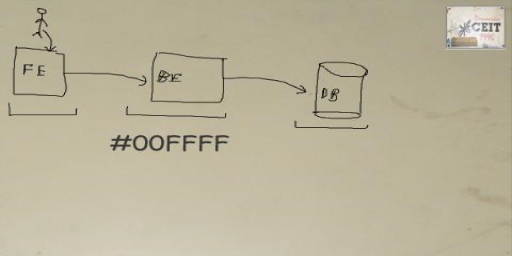 FE
BE
DB
#00FFFF
CEIT